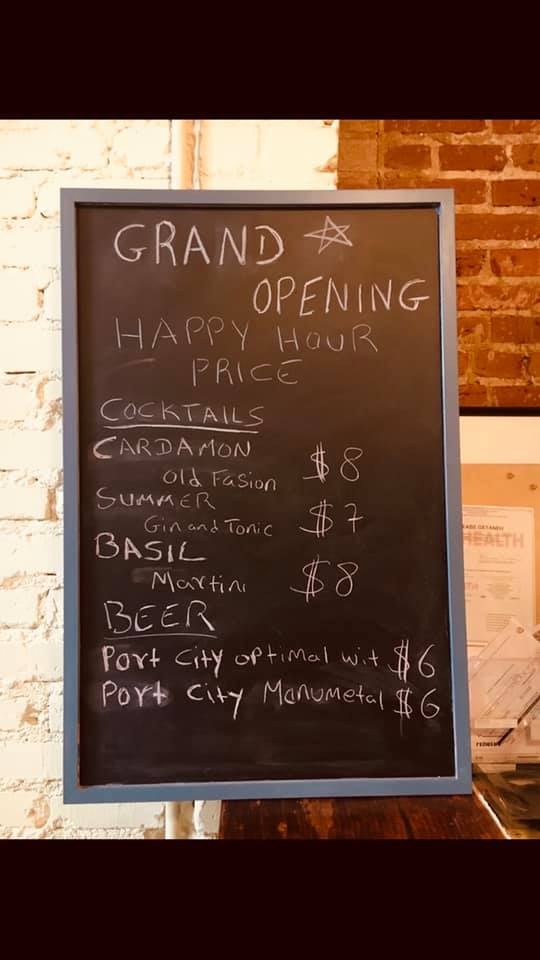 GRAND
OPENING
HAPPY HOUR
PRICE
COCKTAILS
CARDAMON
old Fasion $8
SUMMER
Gin and Tonic $7
BASIL
Martini $8
BEER
Port City optimal wit $6
Port City Manumetal $6
HEALTH